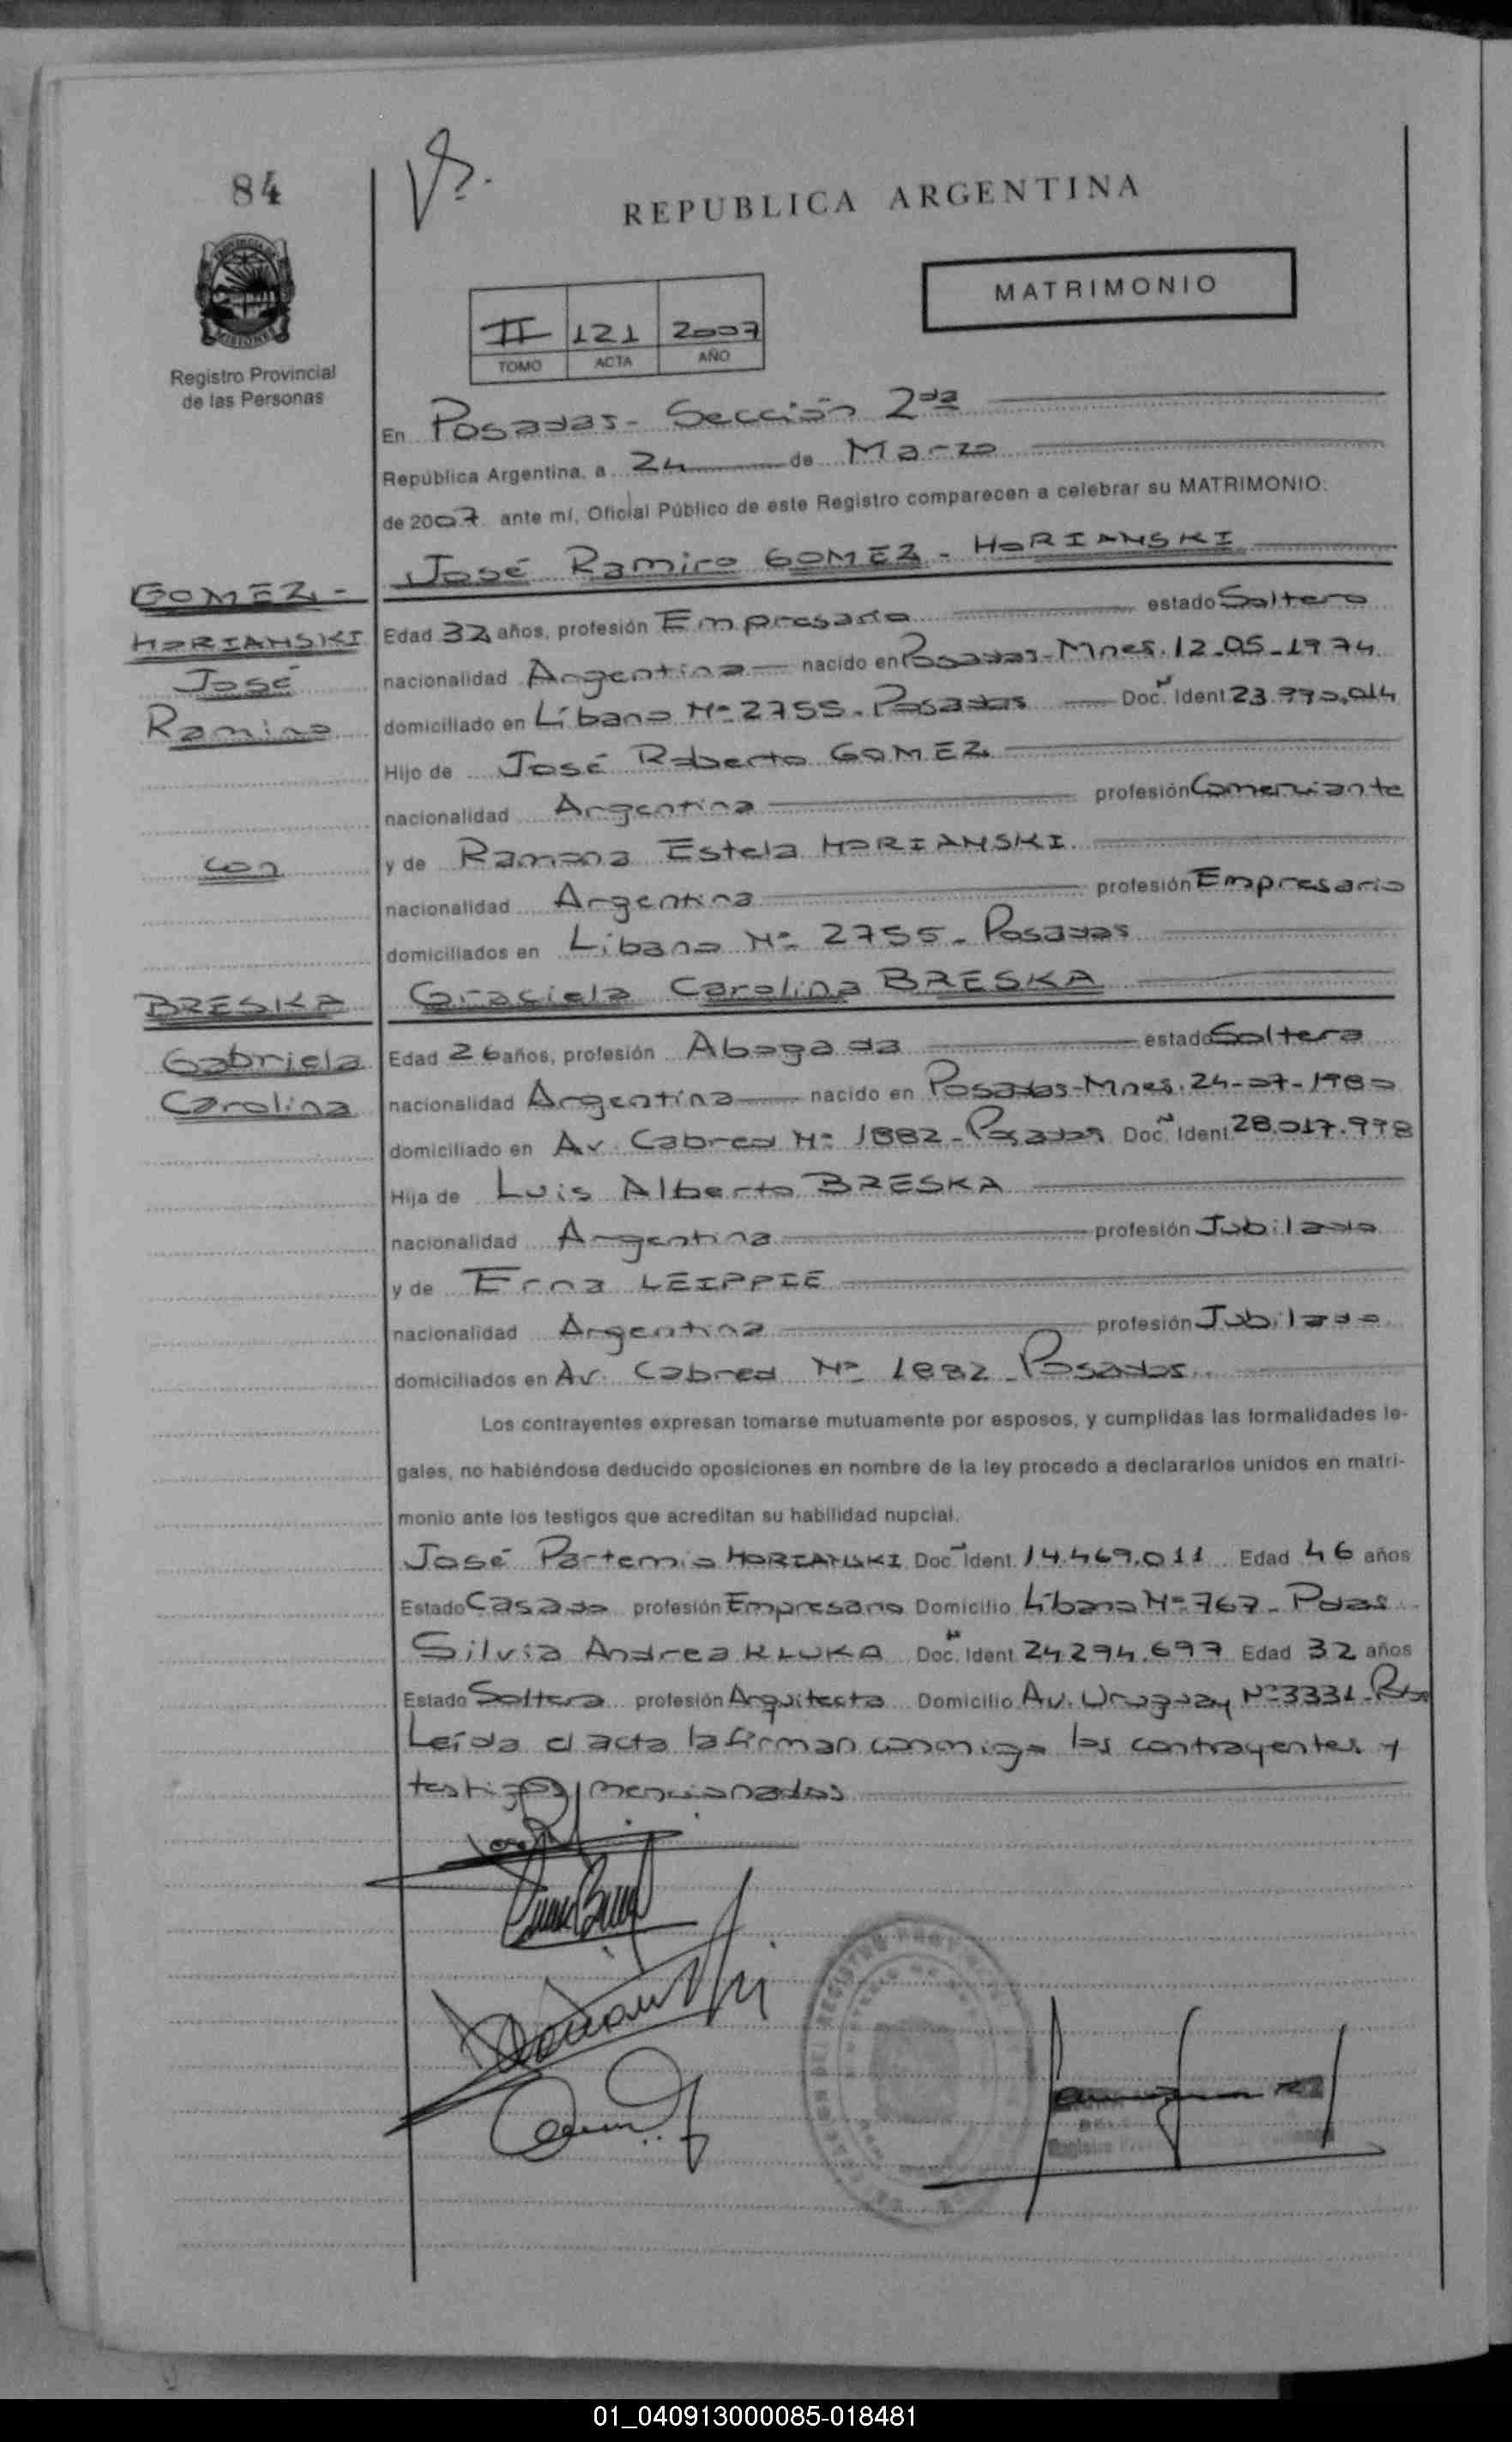 84
REPUBLICA ARGENTINA
MATRIMONIO
II 121 2007
TOMO ACTA AÑO
Registro Provincial
de las Personas
En Posadas - Sección 2da
República Argentina, a 24 de Marzo
de 2007 ante mí, Oficial Público de este Registro comparecen a celebrar su MATRIMONIO:
José Ramiro GOMEZ - HORIANSKI
GOMEZ -
HORIANSKI
José
Ramiro
con
BRESKA
Gabriela
Carolina
Edad 32 años, profesión Empresario estado Soltero
nacionalidad Argentina nacido en Posadas - Mnes. 12-05-1974
domiciliado en Líbano Nº 2755 - Posadas Doc. Ident. 23.990.014
Hijo de José Roberto GOMEZ
nacionalidad Argentina profesión Comerciante
y de Ramona Estela HORIANSKI
nacionalidad Argentina profesión Empresario
domiciliados en Líbano Nº 2755 - Posadas
Graciela Carolina BRESKA
Edad 26 años, profesión Abogada estado Soltera
nacionalidad Argentina nacido en Posadas - Mnes. 24-07-1980
domiciliado en Av. Cabred Nº 1882 - Posadas Doc. Ident. 28.017.998
Hija de Luis Alberto BRESKA
nacionalidad Argentina profesión Jubilado
y de Erna LEIPPIE
nacionalidad Argentina profesión Jubilado
domiciliados en Av. Cabred Nº 1882 - Posadas
Los contrayentes expresan tomarse mutuamente por esposos, y cumplidas las formalidades le-
gales, no habiéndose deducido oposiciones en nombre de la ley procedo a declararlos unidos en matri-
monio ante los testigos que acreditan su habilidad nupcial.
José Partemio HORIANSKI Doc. Ident. 14.469.011 Edad 46 años
Estado Casado profesión Empresario Domicilio Líbano Nº 767 - Pdas
Silvia Andrea KLUKA Doc. Ident. 24.294.697 Edad 32 años
Estado Soltera profesión Arquitecta Domicilio Av. Uruguay Nº 3331 - Pdas
Leída el acta la firman conmigo los contrayentes y
testigos mencionados
01_040913000085-018481